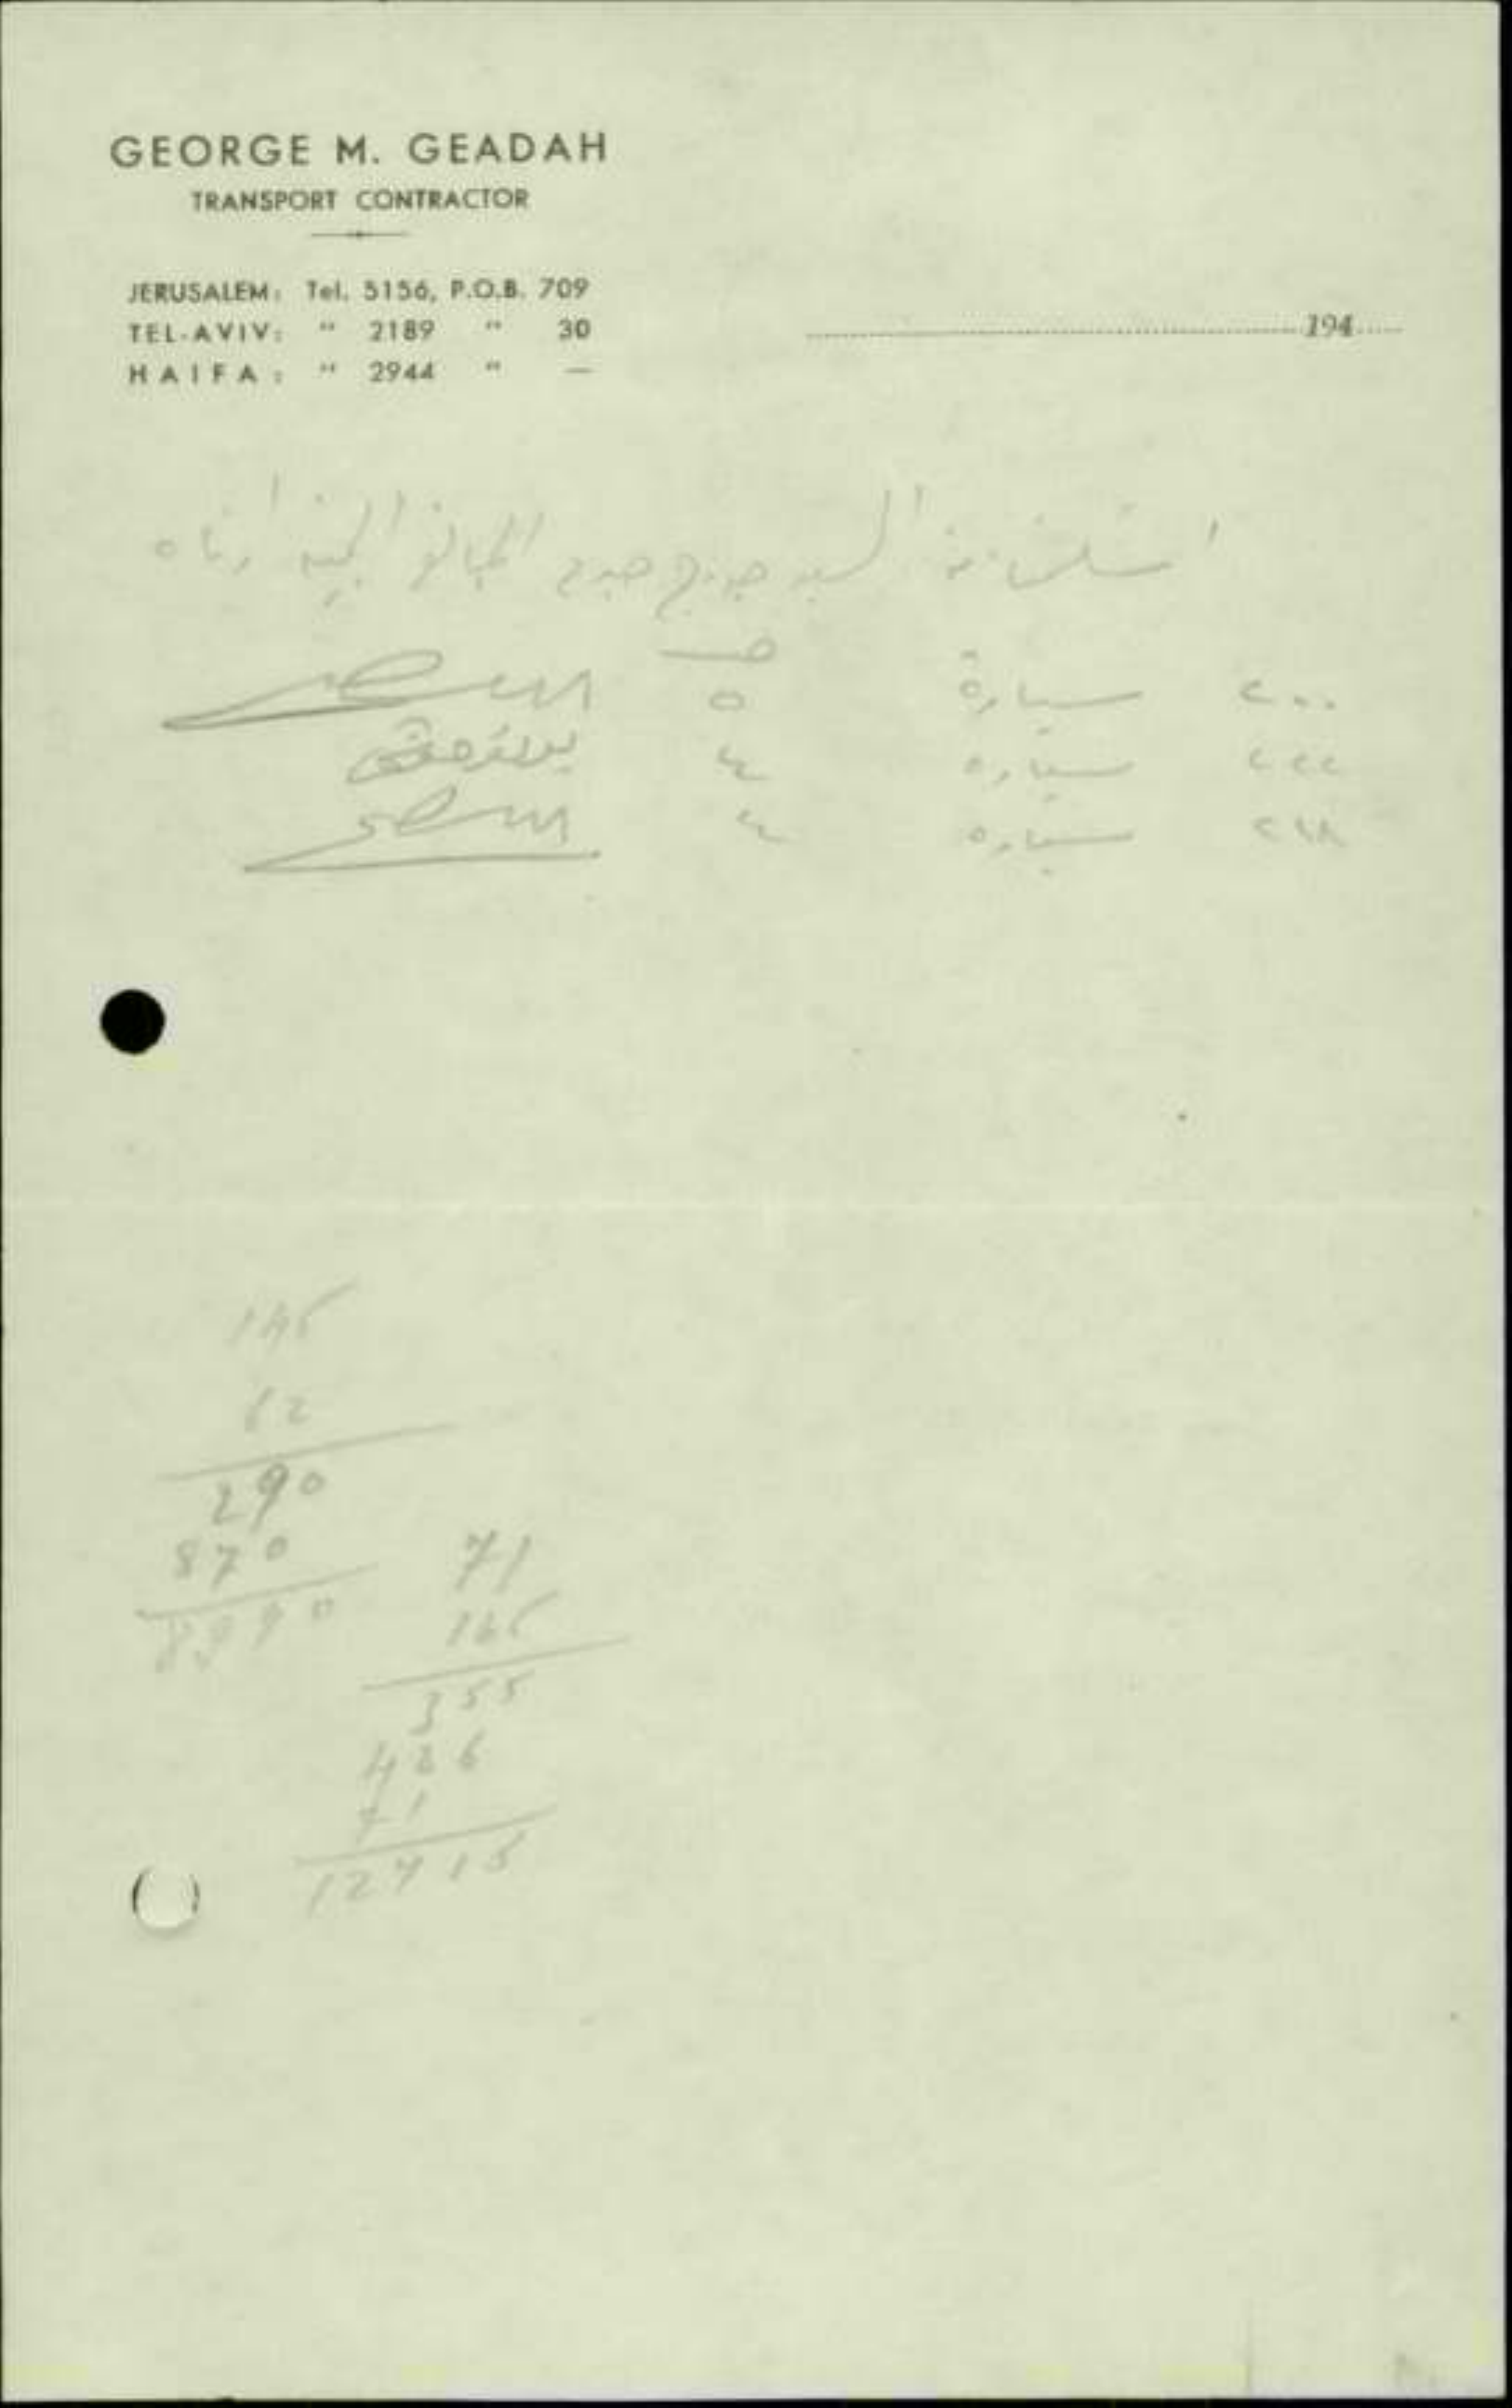 GEORGE M. GEADAH
TRANSPORT CONTRACTOR
JERUSALEM: Tel. 5156, P.O.B. 709
TEL-AVIV: " 2189 " 30
HAIFA: " 2944 " —
194
استلمنا من السيد جورج جدع المبالغ المبينه ادناه
٢٠٠ سيارة ٥
٢٢٢ سياره ٤
٢١٨ سياره ٤
145
62
290
870
8990
71
165
355
426
71
12715